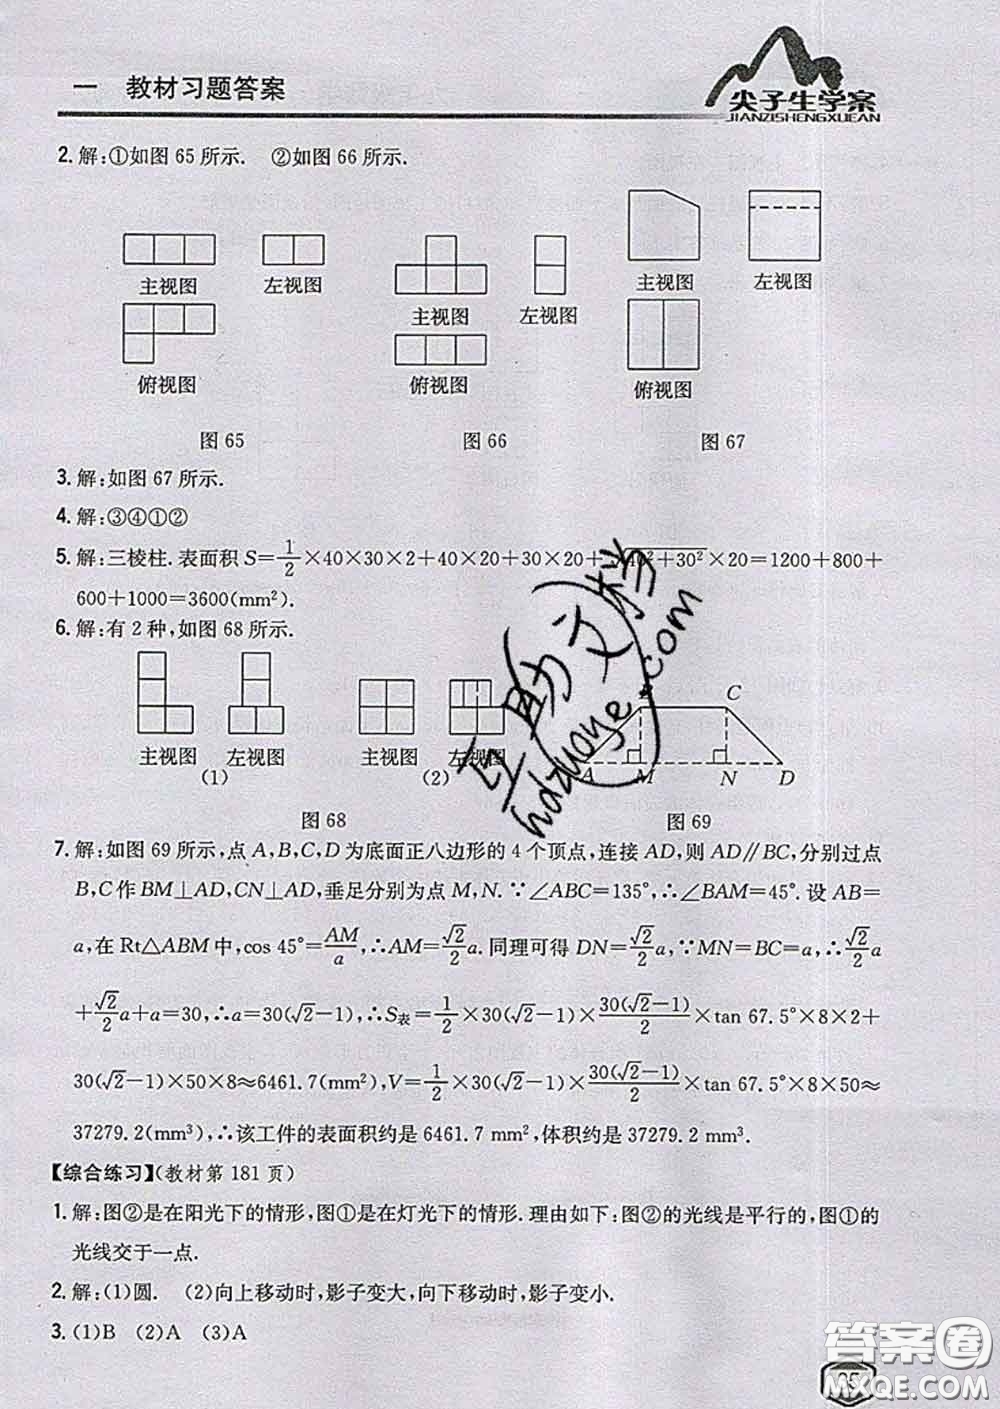 一 教材习题答案
尖子生学案
JIANZISHENGXUEAN
2. 解:①如图 65 所示. ②如图 66 所示.
主视图 左视图
主视图 左视图
主视图 左视图
俯视图
俯视图
俯视图
图 65 图 66 图 67
3. 解:如图 67 所示.
4. 解:③④①②
5. 解:三棱柱. 表面积 S=1/2×40×30×2+40×20+30×20+√(40²+30²)×20=1200+800+
600+1000=3600(mm²).
6. 解:有 2 种,如图 68 所示.
B C
主视图 左视图 主视图 左视图
A M N D
(1) (2)
图 68 图 69
7. 解:如图 69 所示,点 A,B,C,D 为底面正八边形的 4 个顶点,连接 AD,则 AD∥BC,分别过点
B,C 作 BM⊥AD,CN⊥AD,垂足分别为点 M,N.∵∠ABC=135°,∴∠BAM=45°.设 AB=
a,在 Rt△ABM 中,cos 45°=AM/a,∴AM=√2/2a.同理可得 DN=√2/2a,∵MN=BC=a,∴√2/2a
+√2/2a+a=30,∴a=30(√2-1),∴S表=1/2×30(√2-1)×30(√2-1)/2×tan 67.5°×8×2+
30(√2-1)×50×8≈6461.7(mm²),V=1/2×30(√2-1)×30(√2-1)/2×tan 67.5°×8×50≈
37279.2(mm³),∴该工件的表面积约是 6461.7 mm²,体积约是 37279.2 mm³.
【综合练习】(教材第 181 页)
1. 解:图②是在阳光下的情形,图①是在灯光下的情形.理由如下:图②的光线是平行的,图①的
光线交于一点.
2. 解:(1)圆. (2)向上移动时,影子变大,向下移动时,影子变小.
3. (1)B (2)A (3)A
互助文档
hdzuoye.com
答案圈
MXQE.COM